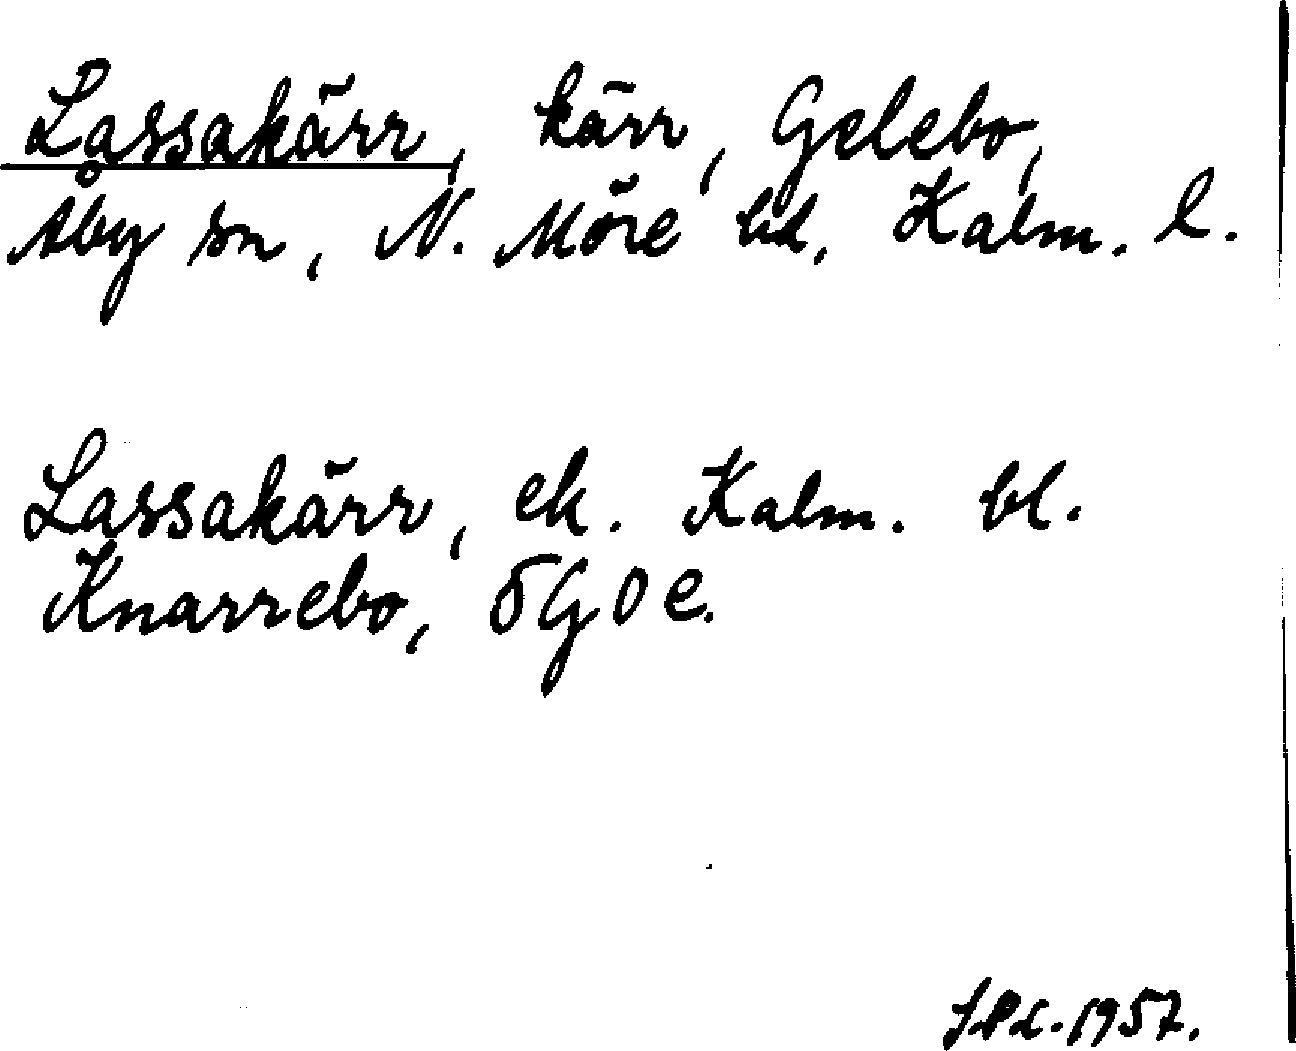 Lassakärr, kärr, Gelebo,
Åby sn, N. Möre hd. Kalm. l.
Lassakärr, ek. Kalm. bl.
Knarrebo, 5G0e.
1957.